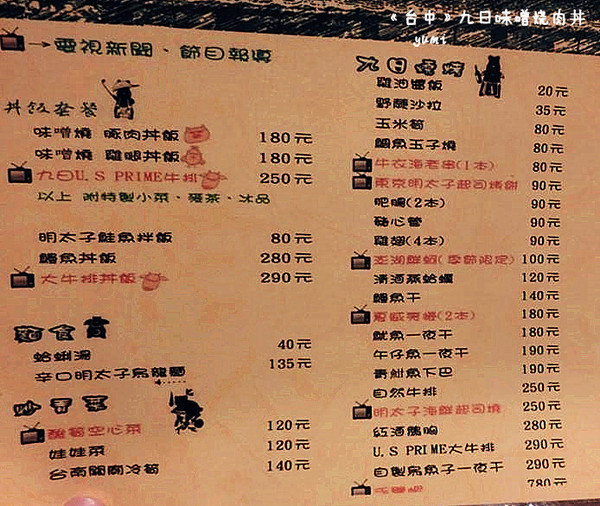 《台中》九日味噌燒肉丼
yumi
→電視新聞、節目報導
丼飯套餐
味噌燒 豚肉丼飯 180元
味噌燒 雞腿丼飯 180元
九日U.S PRIME牛排 250元
以上 附特製小菜、麥茶、冰品
明太子鮭魚拌飯 80元
鰻魚丼飯 280元
大牛排丼飯 290元
麵食賞
蛤蜊湯 40元
辛口明太子烏龍麵 135元
炒青菜
酸筍空心菜 120元
娃娃菜 120元
台南關廟冷筍 140元
九日串燒
雞油拌飯 20元
野蔬沙拉 35元
玉米筍 80元
鯛魚玉子燒 80元
牛衣海老串(1本) 80元
東京明太子起司燒餅 90元
肥腸(2本) 90元
豬心管 90元
雞翅(4本) 90元
澎湖鮮蚵(季節限定) 100元
清酒蒸蛤蠣 120元
鱈魚干 140元
180元
魷魚一夜干 180元
午仔魚一夜干 190元
青魽魚下巴 190元
自然牛排 250元
明太子海鮮起司燒 250元
紅酒鴨胸 280元
U.S PRIME大牛排 290元
自製烏魚子一夜干 290元
780元